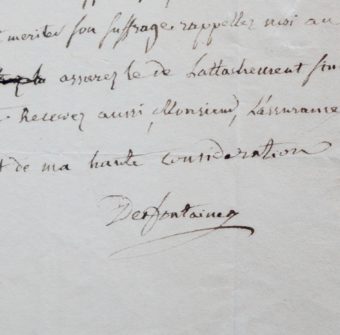 meriter son suffrage. rappellez moi au
assurez le de Lattachement sin
Recevez aussi, Monsieur, L'assurance
de ma haute Consideration
Desfontaines